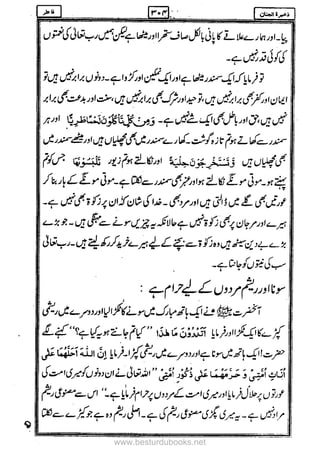 فاطر ۳۰۴ ذخیرة الجنان
پیا۔ اور ہمارے علاقے کا پانی بالکل صاف ستھرا اور میٹھا ہے لیکن ہمیں رب تعالیٰ کی نعمتوں
کی کوئی قدر نہیں ہے۔
تو فرمایا کہ ایک سمندر میٹھا ہے اور ایک نمکین اور کڑوا ہے۔ دونوں برابر نہیں ہیں تو
ایمان اور کفر بھی برابر نہیں ہیں، توحید اور شرک بھی برابر نہیں ہیں، سنت اور بدعت بھی برابر
نہیں ہیں، حق اور باطل بھی ایک شے نہیں ہے۔ وَمِنْ كُلٍّ تَأْكُلُوْنَ لَحْمًا طَرِيًّا اور ہر
سمندر سے کھاتے ہو تم تازہ گوشت۔ کھارے سمندر میں مچھلیاں ہیں اور میٹھے سمندر میں
بھی مچھلیاں ہیں وَّتَسْتَخْرِجُوْنَ حِلْيَةً اور نکالتے ہو تم زیور تَلْبَسُوْنَهَا جس کو تم
پہنتے ہو۔ موتی مونگے نکالتے ہو اور عنبر بھی سمندر سے نکلتا ہے۔ موتی مونگے کے ہار بنا کر
عورتیں بھی گلے میں ڈالتی ہیں اور مرد بھی۔ خدا کی شان کہ ان پر زکوٰۃ بھی نہیں ہے۔
ہیرے اور مرجان پر بھی زکوٰۃ نہیں ہے حالانکہ یہ چیزیں سونے سے مہنگی ہیں۔ جو بڑے
بڑے بے دین سیٹھ ہیں وہ زکوٰۃ سے بچنے کے لیے ہیرے خرید کر رکھ لیتے ہیں۔ رب تعالیٰ
سب کی نیتوں کو جانتا ہے۔
سونا اور ریشم مردوں کے لیے حرام ہے :
آنحضرت ﷺ نے ایک ہاتھ مبارک میں سونے کا ٹکڑا لیا اور دوسرے میں ریشمی
کپڑے کا ایک ٹکڑا اور فرمایا اَتَدْرُوْنَ مَا هٰذَا ’’ کیا تم جانتے ہو یہ کیا ہے؟‘‘ کہنے لگے
حضرت! ایک ہاتھ میں سونا ہے اور دوسرے میں ریشمی کپڑا۔ فرمایا اِنَّ اللّٰهَ اَحَلَّهُمَا عَلٰى
اُنَاثِ اُمَّتِىْ وَ حَرَّمَهُمَا عَلٰى ذُكُوْرِ اُمَّتِىْ ’’اللہ تعالیٰ نے ان دونوں کو میری امت کی
عورتوں پر حلال فرمایا ہے اور میری امت کے مردوں پر حرام فرمایا ہے۔‘‘ اس سے مصنوعی ریشم
مراد نہیں ہے۔ یہ میری پگڑی مصنوعی ریشم کی ہے۔ اصلی ریشم وہ ہے جو کیڑے سے نکلتا
۹
www.besturdubooks.net